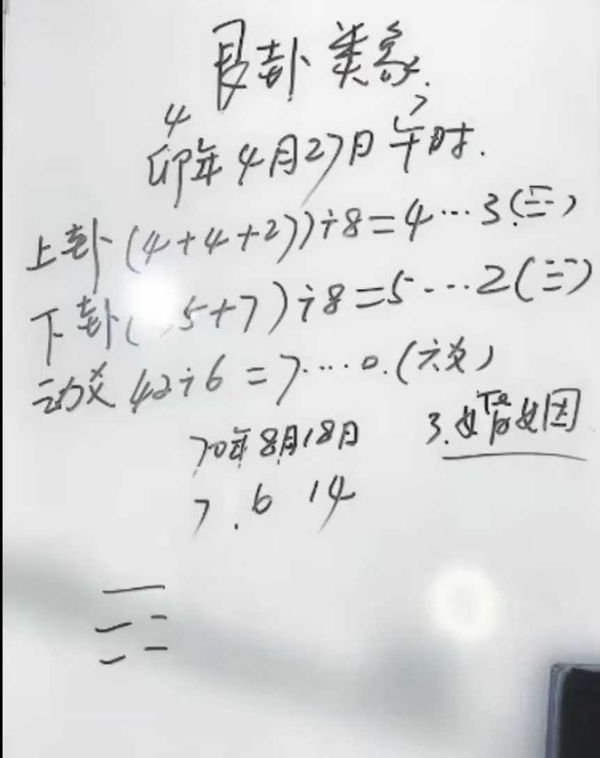 艮卦类象
4 7
卯年4月27日午时.
上卦(4+4+27)÷8=4…3(☲)
下卦( 5+7)÷8=5…2(☱)
动爻 42÷6=7…0.(六爻)
70年8月18日
3.婚姻
7.6 14